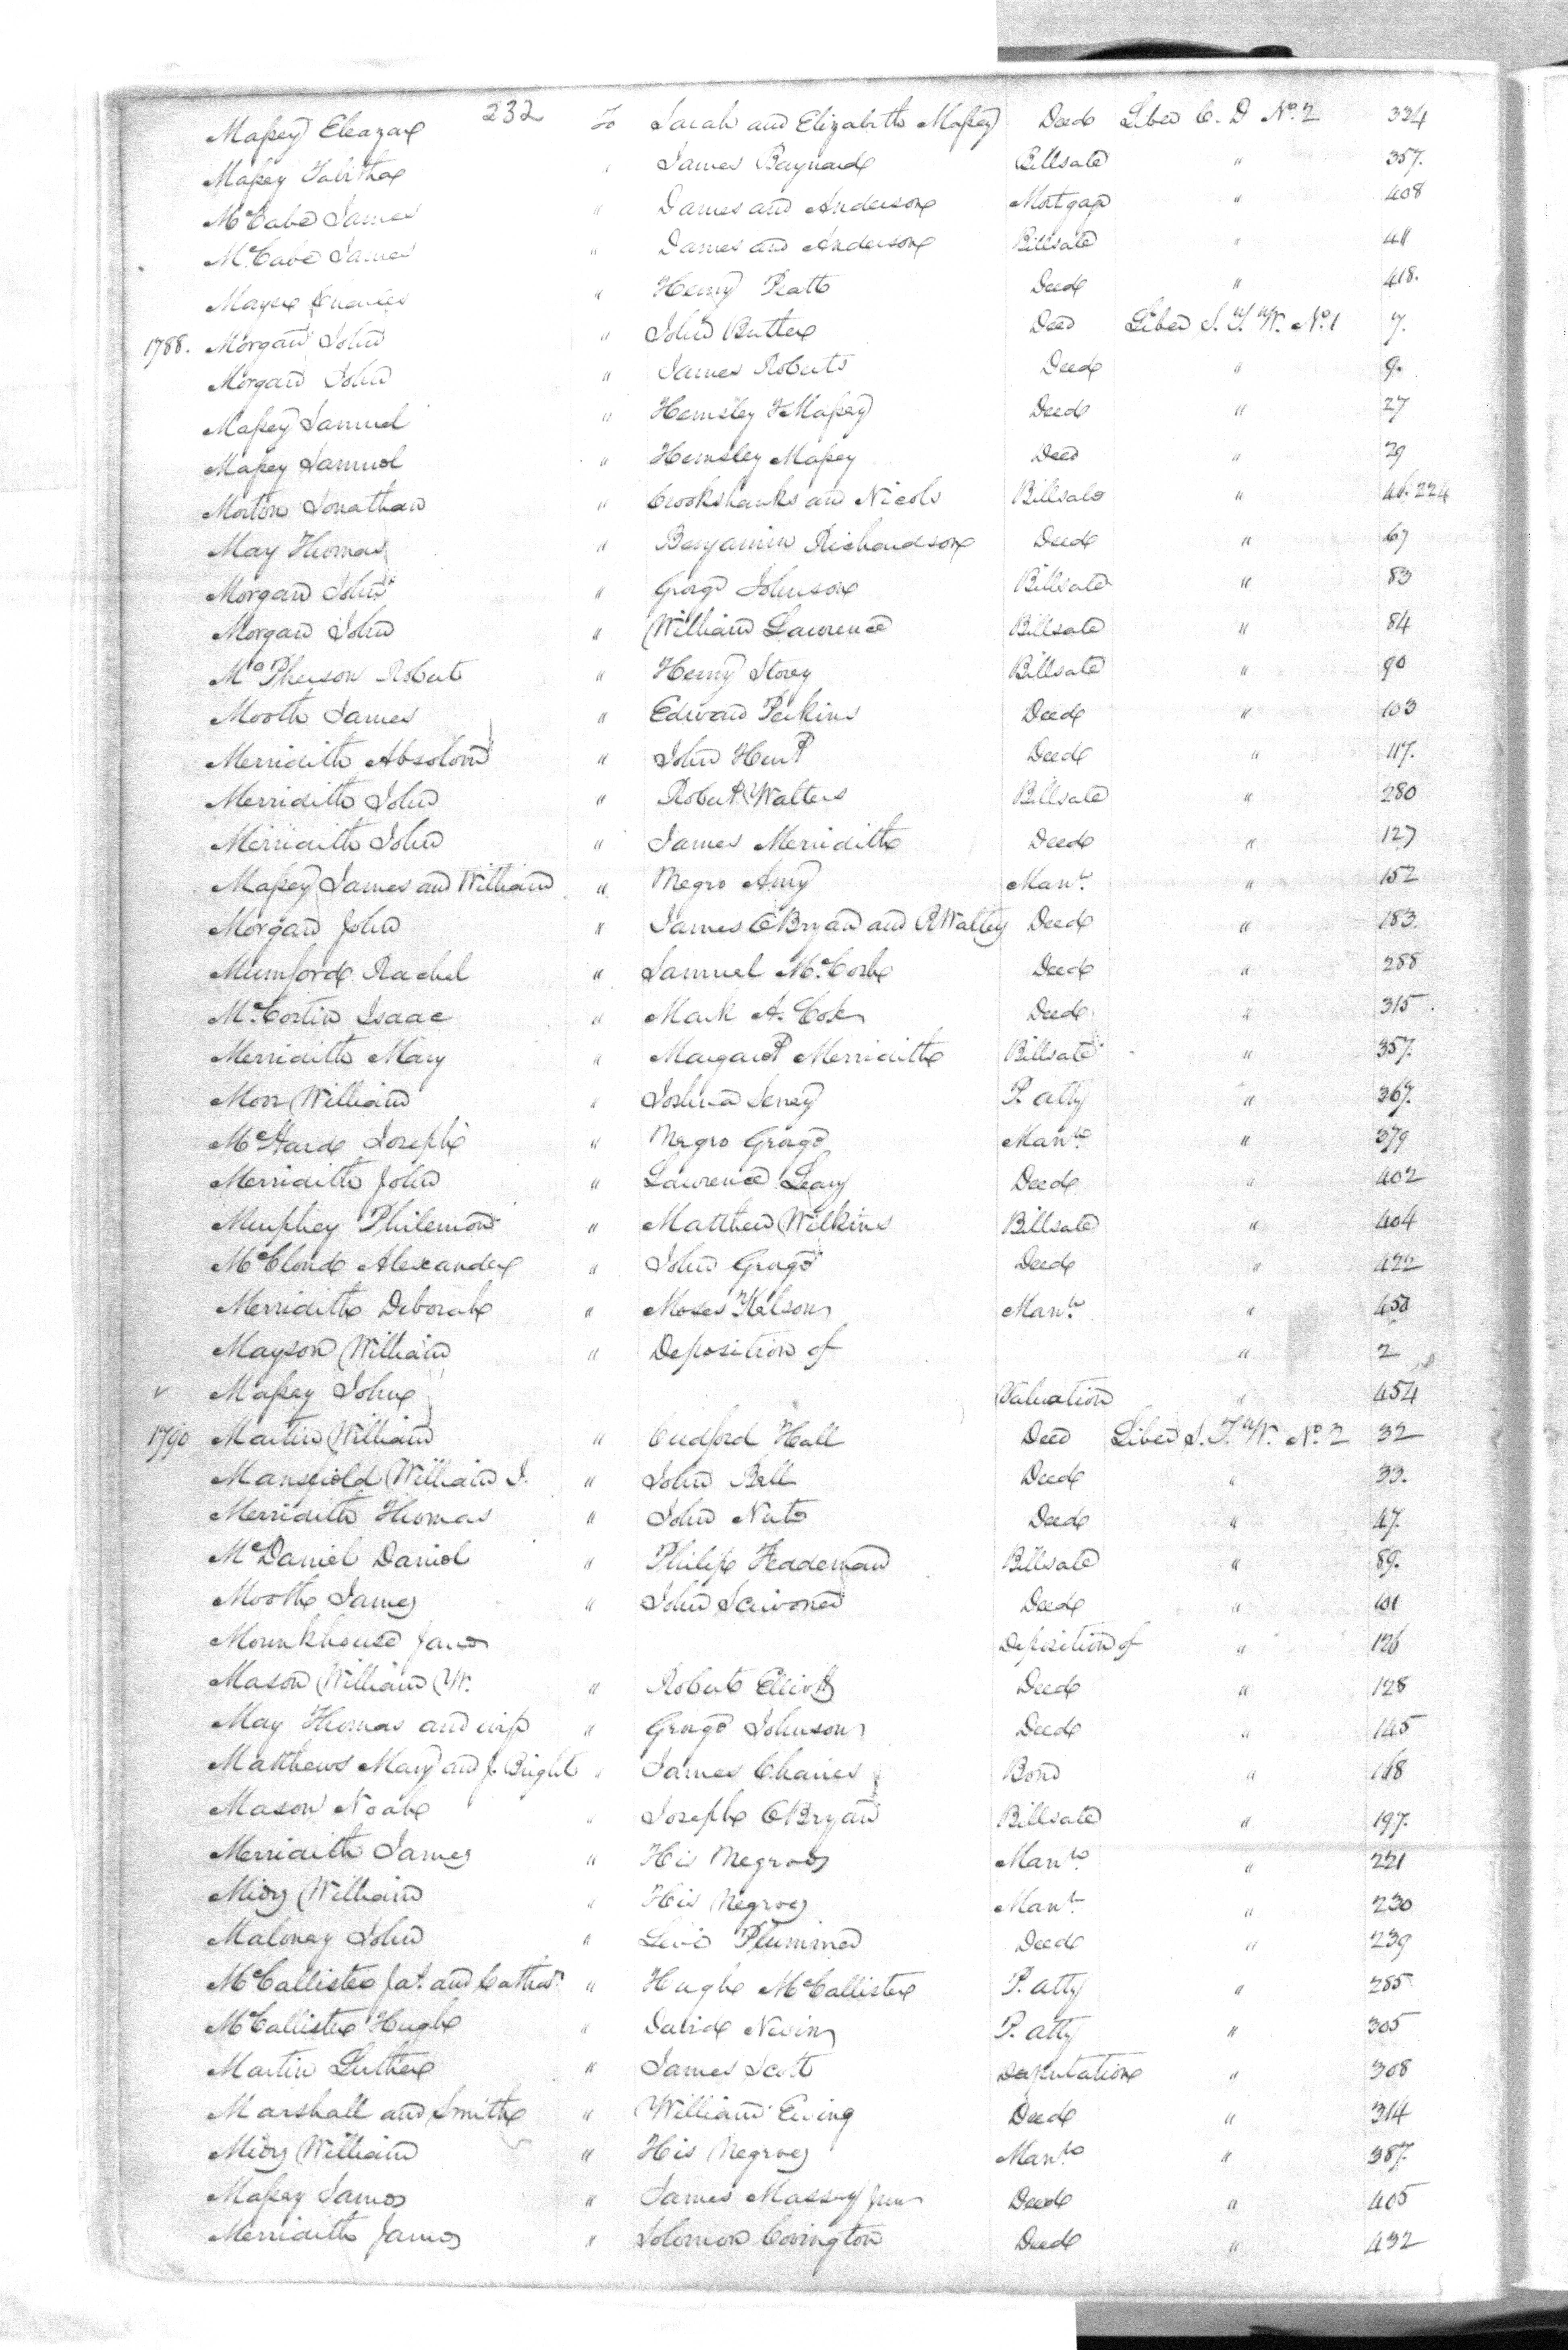 232
Massey Eleazar To Sarah and Elizabeth Massey Deed Liber C. D No. 2 334
Massey Tabitha " James Baynard Billsale " 357.
McCabe James " Dames and Anderson Mortgage " 408
McCabe James " Dames and Anderson Billsale " 411
Charles " Henry Pratt Deed " 418.
1788. Morgan John " John Butler Deed Liber S. T. W. No. 1 7.
Morgan John " James Roberts Deed " 9.
Massey Samuel " Hemsley Massey Deed " 27
Massey Samuel " Hemsley Massey Deed " 29
Morton Jonathan " Crookshanks and Nicols Billsale " 224
May Thomas " Benjamin Richardson Deed " 67
Morgan John " George Johnson Billsale " 83
Morgan John " William Lawrence Billsale " 84
McPherson Robert " Henry Storey Billsale " 90
Mooth James " Edward Perkins Deed " 103
Merridith Absolom " John Hunt Deed " 117.
Merridith John " Robert Walters Billsale " 280
Merridith John " James Merridith Deed " 127
Massey James and William " Negro Amy Mann. " 152
Morgan John " James OBryan and R Walters Deed " 183.
Mumford Rachel " Samuel McCosh Deed " 288
McCostin Isaac " Mark A. Cook Deed " 315.
Merridith Mary " Margaret Merridith Billsale " 357.
Morr William " Joshua Seney P. atty " 367.
Joseph " Negro George Mann. " 379
Merridith John " Lawrence Leary Deed " 402
Murphey Philemon " Matthew Wilkins Billsale " 404
McCloud Alexander " John George Deed " 422
Merridith Deborah " Moses Kelson Mann. " 450
Mayson William " Deposition of " 2
Massey John Valuation " 454
1790 Martin William " Cudford Hall Deed Liber S. T. W. No. 2 32
Mansfield William J. " John Bell Deed " 33.
Merridith Thomas " John Nuts Deed " 47.
McDaniel Daniel " Philip Feddeman Billsale " 89.
Mooth James " John Scrivoner Deed " 101
Mounkhouse James Deposition of " 126
Mason William W. " Robert Elliott Deed " 128
May Thomas and wife " George Johnson Deed " 145
Matthews Mary and J. Bright " James Chaires Bond " 168
Mason Noah " Joseph OBryan Billsale " 197.
Merridith James " His Negroes Mann. " 221
William " His Negroes Mann. " 230
Maloney John " Levi Plummer Deed " 239
McCallister Jas. and Cathn. " Hugh McCallister P. atty " 285
McCallister Hugh " David Nevin P. atty " 305
Martin Luther " James Scott Deputation " 308
Marshall and Smith " William Ewing Deed " 314
William " His Negroes Mann. " 387.
Massey James " James Massey Jun Deed " 405
Merridith James " Solomon Covington Deed " 432